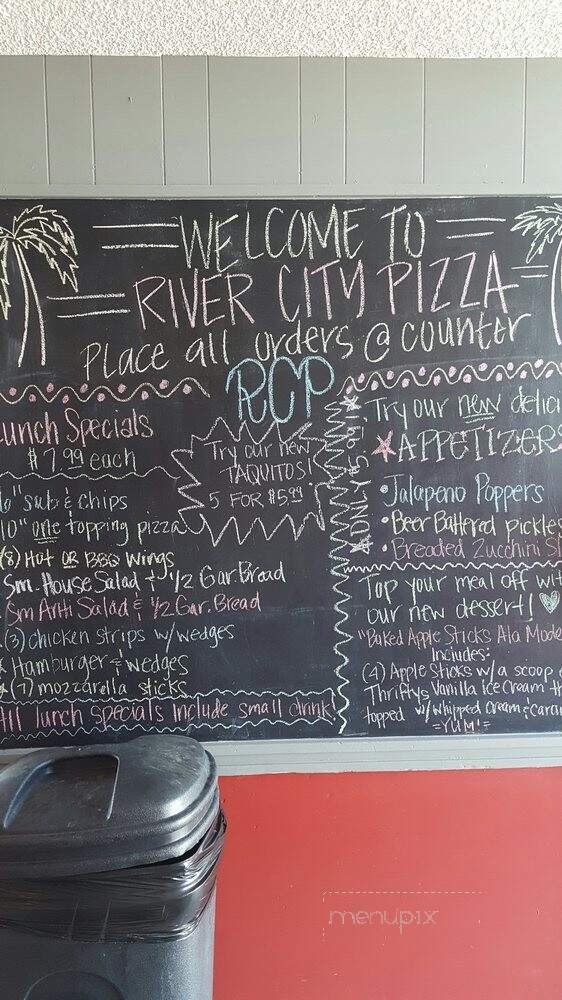 WELCOME TO
RIVER CITY PIZZA
Place all orders @ counter
RCP
Lunch Specials
$7.99 each
6" sub & chips
10" one topping pizza
(8) Hot OR BBQ Wings
Sm. House Salad & 1/2 Gar. Bread
Sm Anti Salad & 1/2 Gar. Bread
(3) chicken strips w/ wedges
Hamburger & wedges
(7) mozzarella sticks
All lunch specials include small drink!
Try our new
TAQUITOS!
5 FOR $5.99
ONLY
Try our new delici
APPETIZERS
•Jalapeno Poppers
•Beer Battered pickles
•Breaded Zucchini Sl
Top your meal off wit
our new dessert!
"Baked Apple Sticks Ala Mode
Includes:
(4) Apple Sticks w/a scoop o
Thriftys Vanilla Ice Cream th
topped w/ Whipped Cream & Caram
=YUM!=
menupix